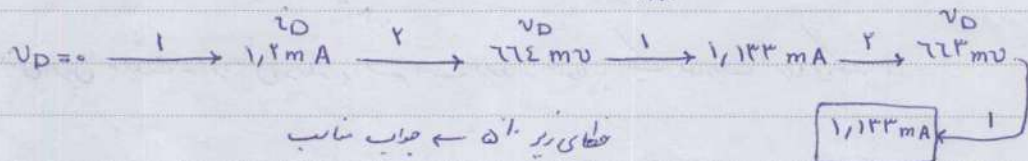 iD vD vD
vD=۰ ۱ ۱,۲mA ۲ ۶۶٤ mv ۱ ۱,۱۳۳ mA ۲ ۶۶۳mv
خطای زیر ۵٪ ← جواب مناسب ۱,۱۳۳mA ۱